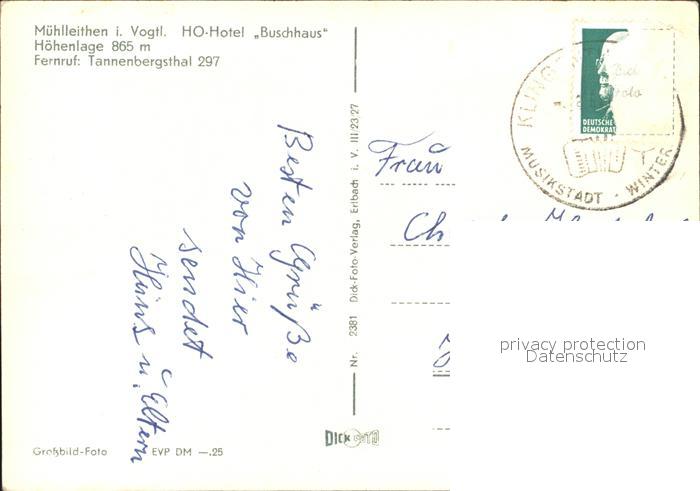 Mühlleithen i. Vogtl. HO-Hotel „Buschhaus"
Höhenlage 865 m
Fernruf: Tannenbergsthal 297
Besten Grüße
von Hier
sendet
Hans u. Eltern
Großbild-Foto EVP DM —.25
Nr. 2381 Dick-Foto-Verlag, Erlbach i. V. III/23/27
DICK FOTO
DEUTSCHE
DEMOKRAT
KLING
MUSIKSTADT - WINTER
Frau
Ch
privacy protection
Datenschutz